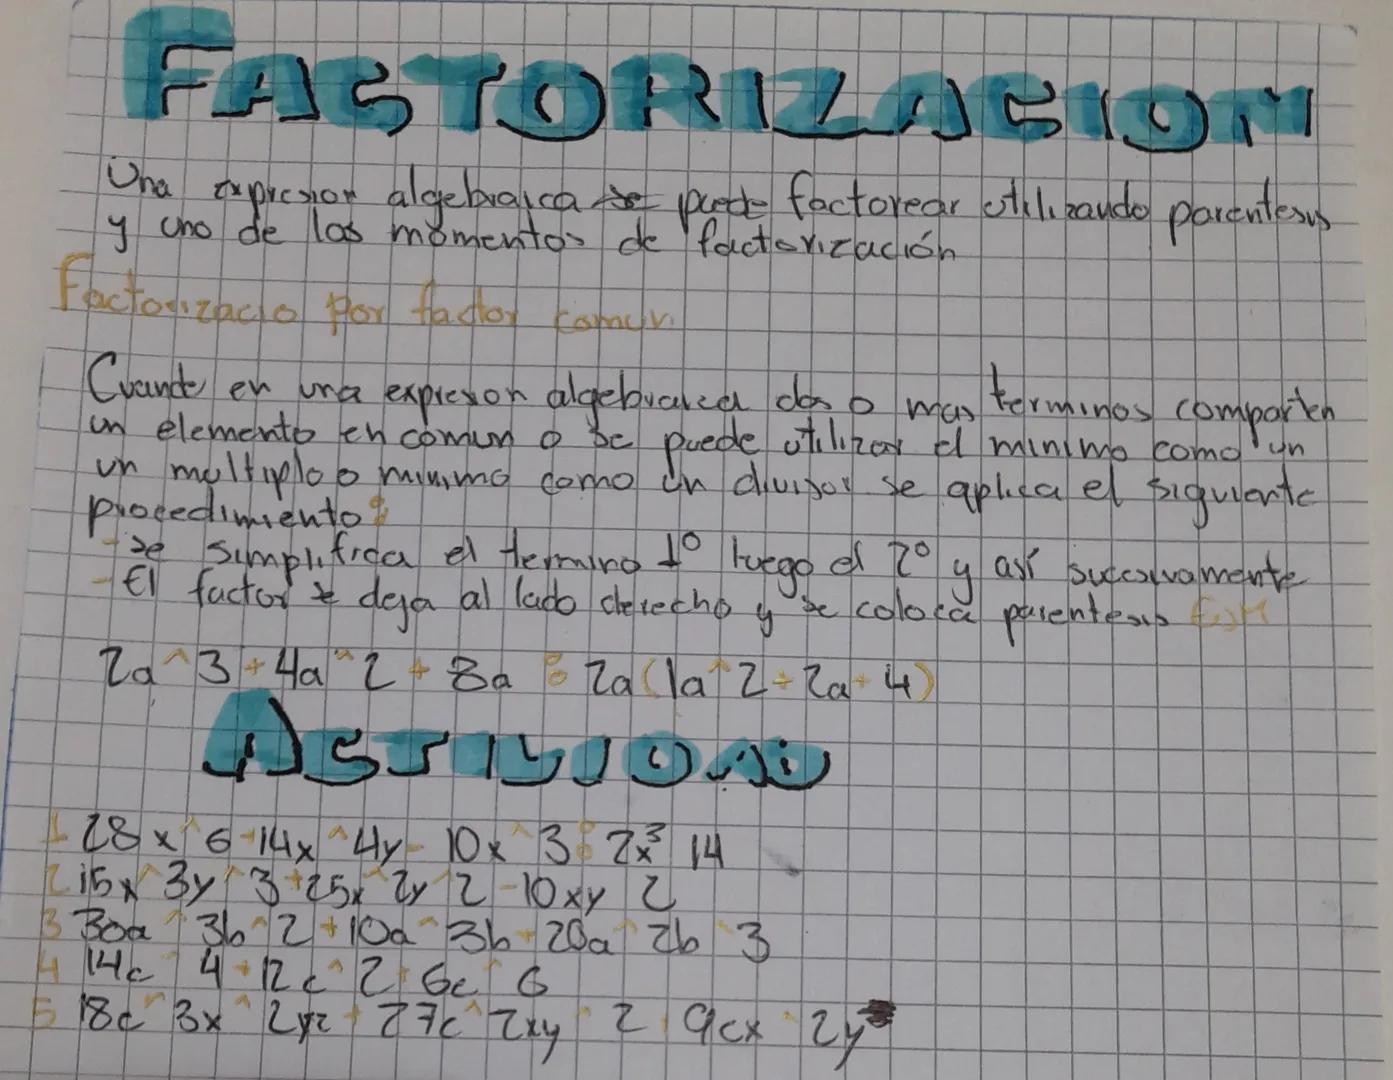 FACTORIZACION
Una expresion algebraica se puede factorear utilizando parentesis
y uno de los momentos de factorización
Factorizacio por factor comun
Cuando en una expresion algebraica dos o mas terminos comparten
un elemento en comun o se puede utilizar el minimo como un
un multiplo o minimo como un divisor se aplica el siguiente
procedimiento:
-se simplifica el termino 1º luego el 2º y así sucesivamente
-El factor se deja al lado derecho y se coloca parentesis
2a^3+4a^2+8a : 2a(1a^2+2a+4)
ACTIVIDAD
1 28x^6+14x^4y-10x^3: 2x³ 14
2 15x^3y^3+25x^2y^2-10xy^2
3 30a^3b^2+10a^3b+20a^2b^3
4 14c^4+12c^2+6c^6
5 18c^3x^2yz+27c^2xy^2 9cx^2y